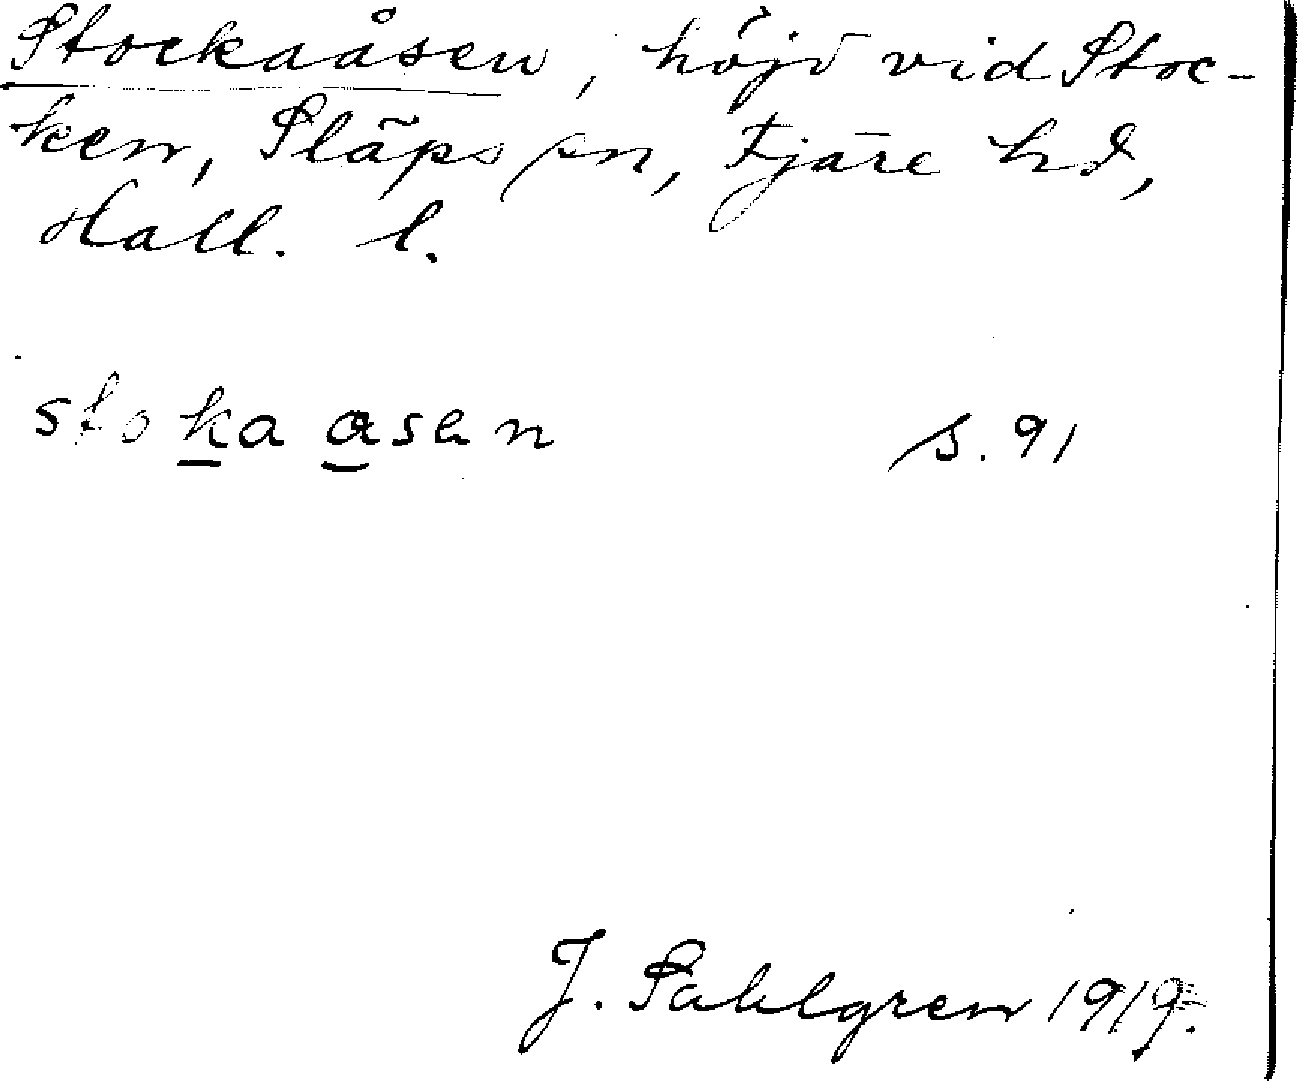 Stockaåsen, höjd vid Stoc-
ken, Släps sn, Fjäre hd,
Hall. l.
stokaasen s. 91
J. Sahlgren 1919.